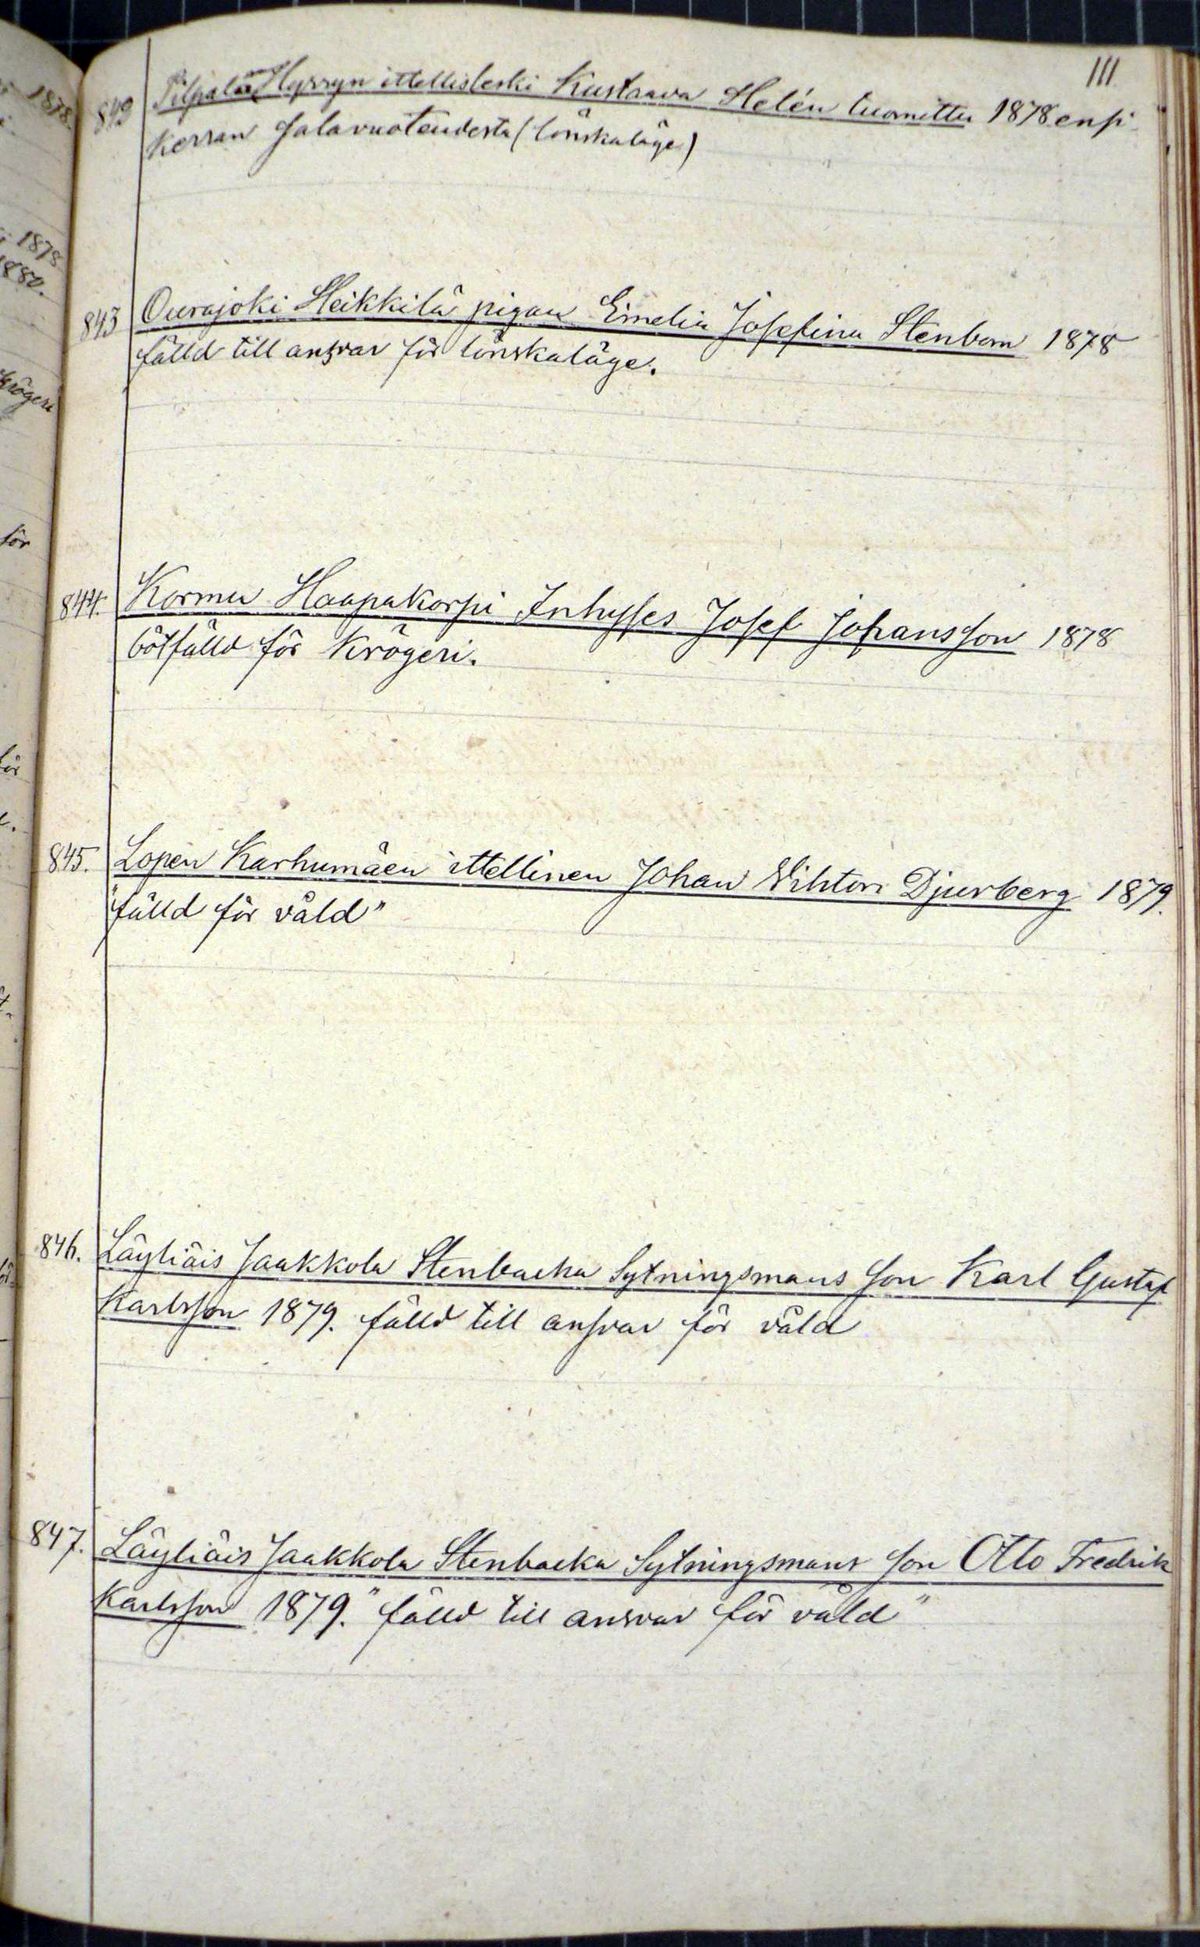 111
843 Pilpalan Hyrryn ittellisleski Kustaava Helén tuomittu 1878 ensi
kerran salavuoteudesta (lönskaläge)
843 Ourajoki Heikkilä pigan Emelia Josefina Stenbom 1878
fälld till ansvar för lönskaläge.
844. Kormu Haapakorpi Inhyses Josef Johansson 1878
bötfälld för Krögeri.
845. Lopen Karhumäen ittellinen Johan Vihtori Djurberg 1879.
"fälld för våld"
846. Läyliäis Jaakkola Stenbacka Sytningsmans son Karl Gustaf
Karlsson 1879. fälld till ansvar för våld
847. Läyliäis Jaakkola Stenbacka Sytningsmans son Otto Fredrik
Karlsson 1879. "fälld till ansvar för våld"